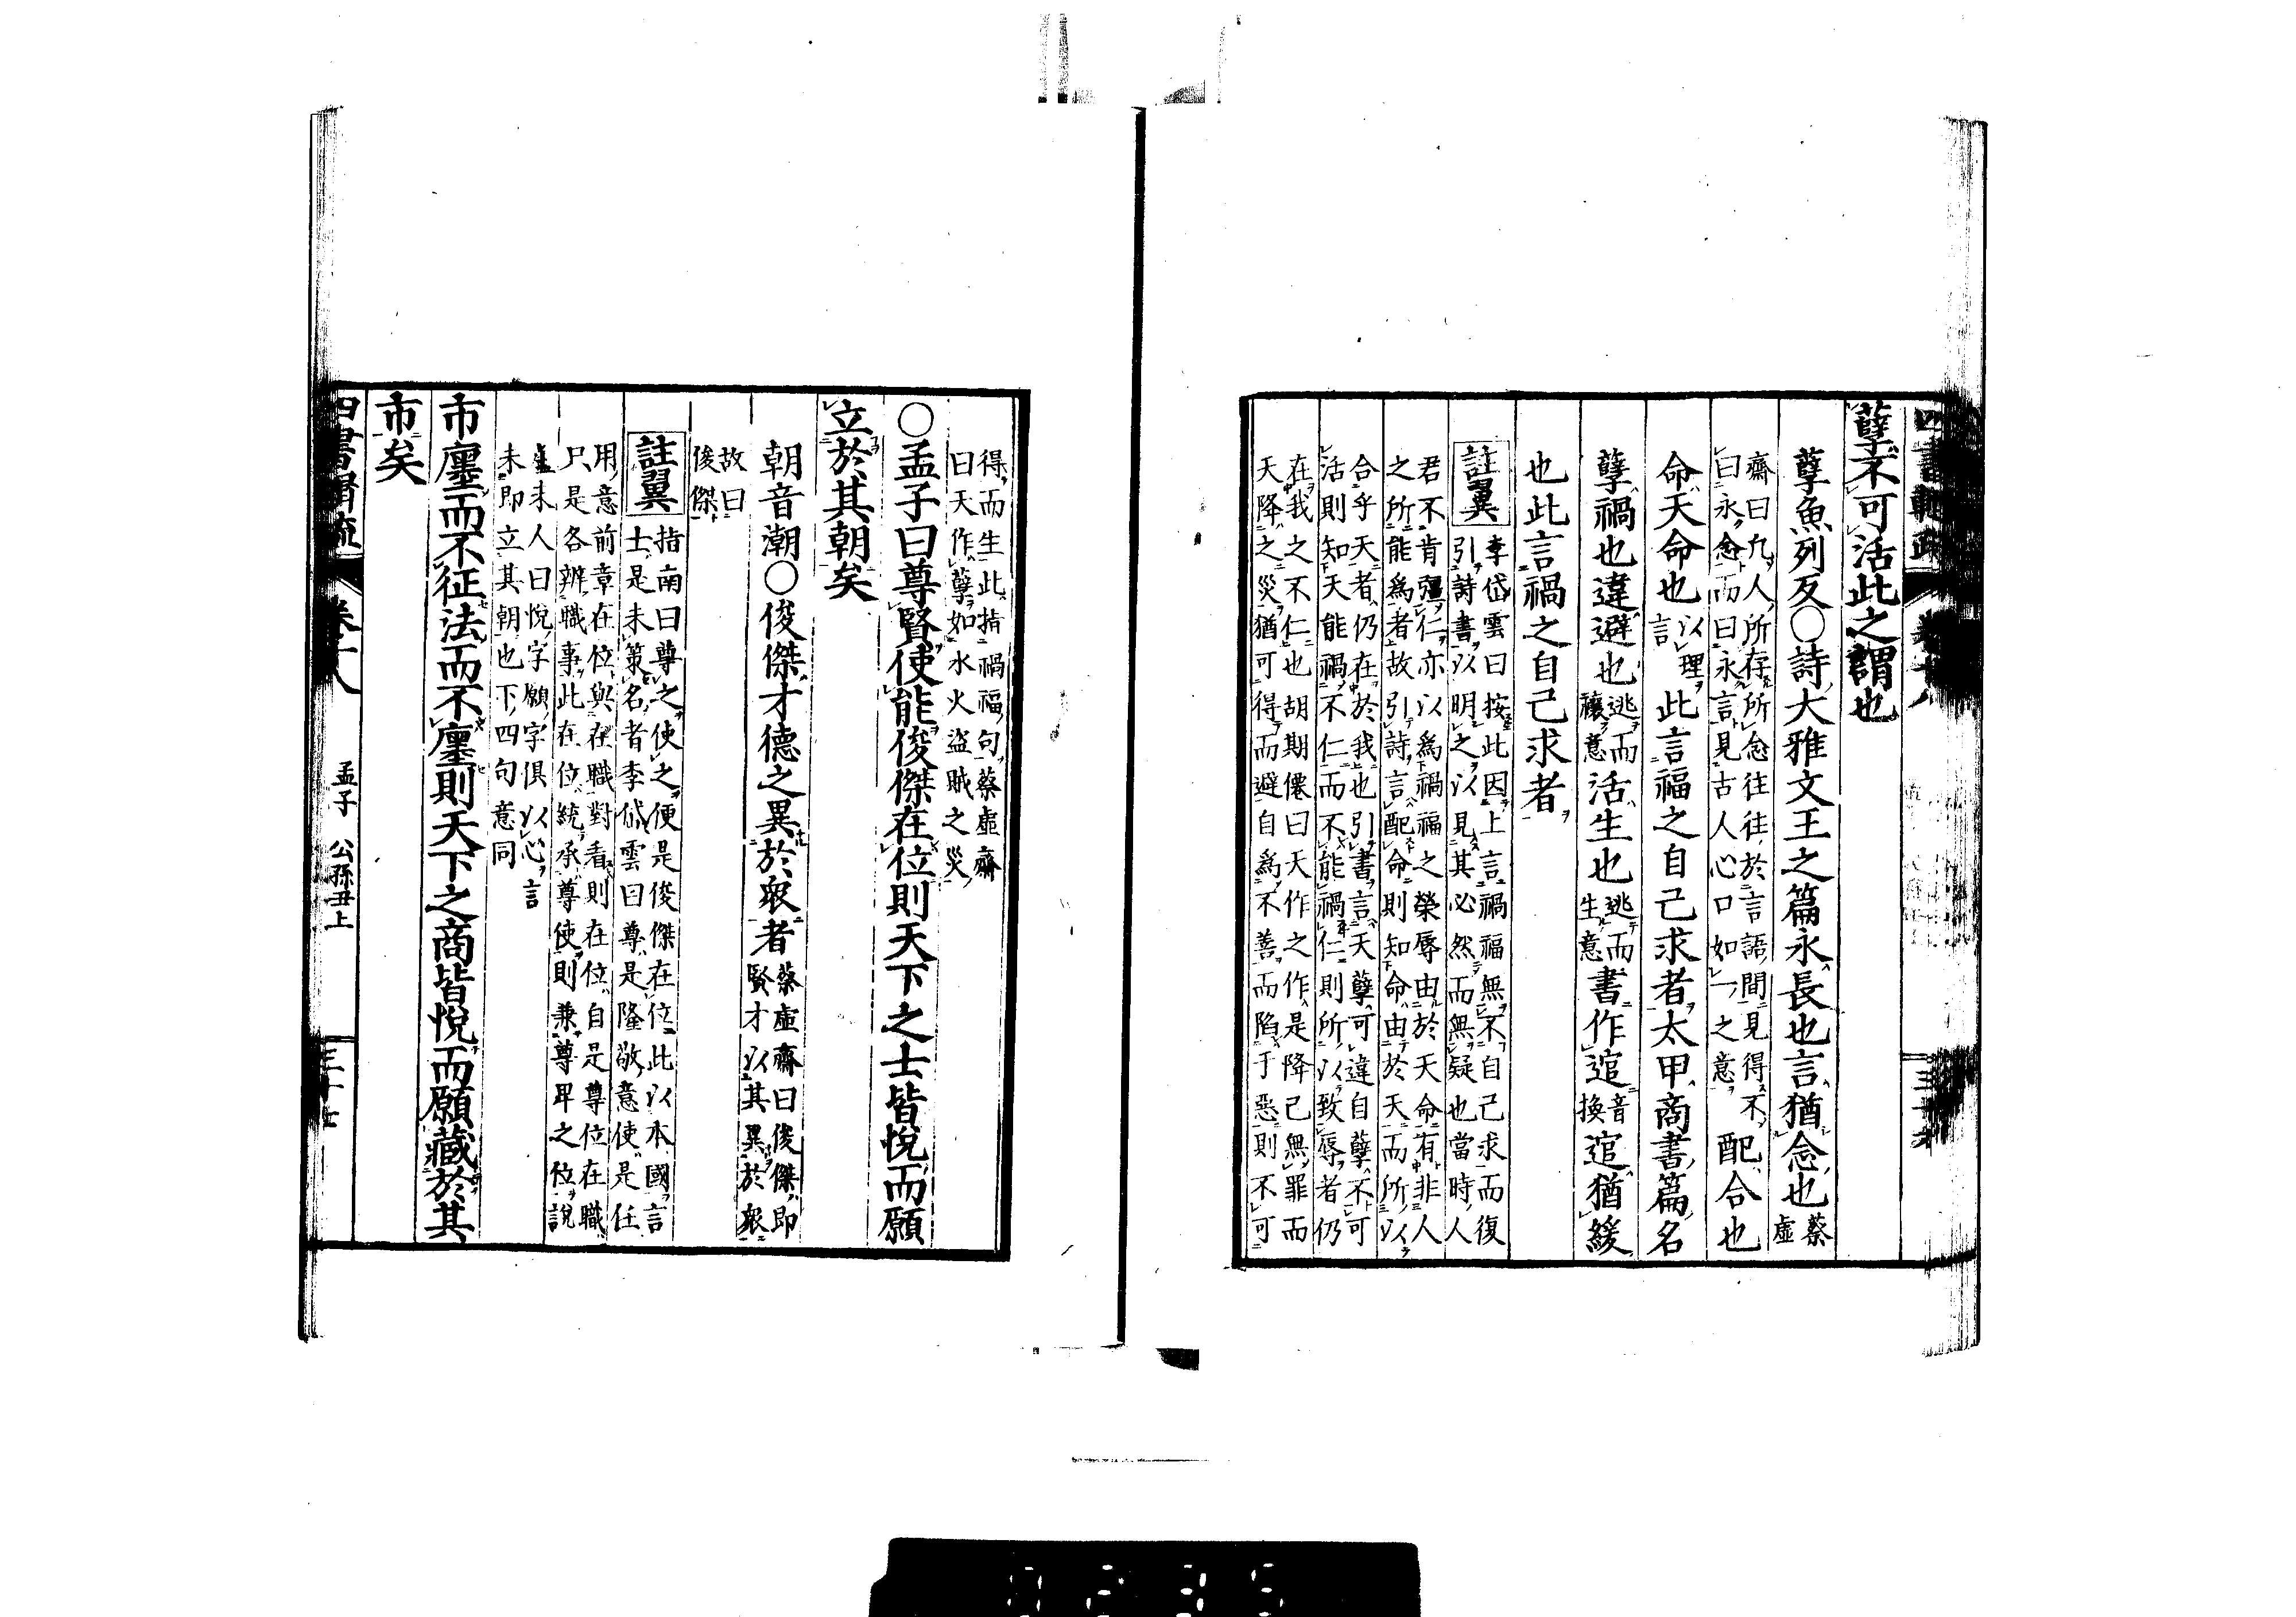 孽不可活此之謂也
孽魚列反○詩大雅文王之篇永長也言猶念也蔡虛
齋曰凡人所存所念往往於言語間見得不
曰永念而曰永言見古人心口如一之意配合也
命天命也以理言此言福之自己求者太甲商書篇名
孽禍也違避也逃而禳意活生也逃而生意書作逭音換逭猶緩
也此言禍之自己求者
註翼
李岱雲曰按此因上言禍福無不自己求而復
引詩書以明之以見其必然而無疑也當時人
君不肯彊仁亦以為禍福之榮辱由於天命有非人
之所能為者故引詩言配命則知命由於天而所以
合乎天者仍在於我也引書言天孽可違自孽不可
活則知天能禍不仁而不能禍仁則所以致辱者仍
在我之不仁也胡期僊曰天作之作是降己無罪而
天降之災猶可得而避自為不善而陷于惡則不可
得而生此指禍福句蔡虛齋
曰天作孽如水火盜賊之災
○孟子曰尊賢使能俊傑在位則天下之士皆悅而願
立於其朝矣
朝音潮○俊傑才德之異於眾者蔡虛齋曰俊傑即
賢才以其異於眾
故曰
俊傑
註翼
指南曰尊之使之便是俊傑在位此以本國言
士是未策名者李岱雲曰尊是隆敬意使是任
用意前章在位與在職對看則在位自是尊位在職
只是各辨職事此在位統承尊使則兼尊卑之位說
未人曰悅字願字俱以心言
未即立其朝也下四句意同
市廛而不征法而不廛則天下之商皆悅而願藏於其
市矣
卷十八
孟子 公孫丑上
三十七